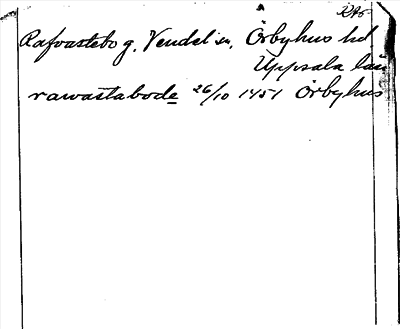 RAp
Rafvastebo g. Vendel sn. Örbyhus hd
Uppsala län
rawastabode 26/10 1451 Örbyhus